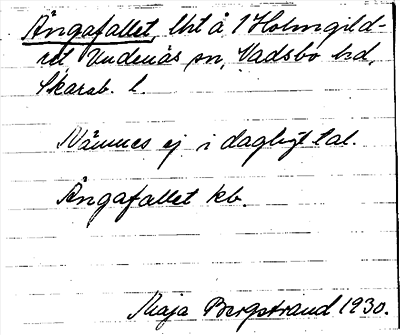 Ängafallet, lht å 1 Holmgild-
ret Undenäs sn, Vadsbo hd,
Skarab. l.
Nämnes ej i dagligt tal.
Ängafallet kb.
Maja Bergstrand 1930.